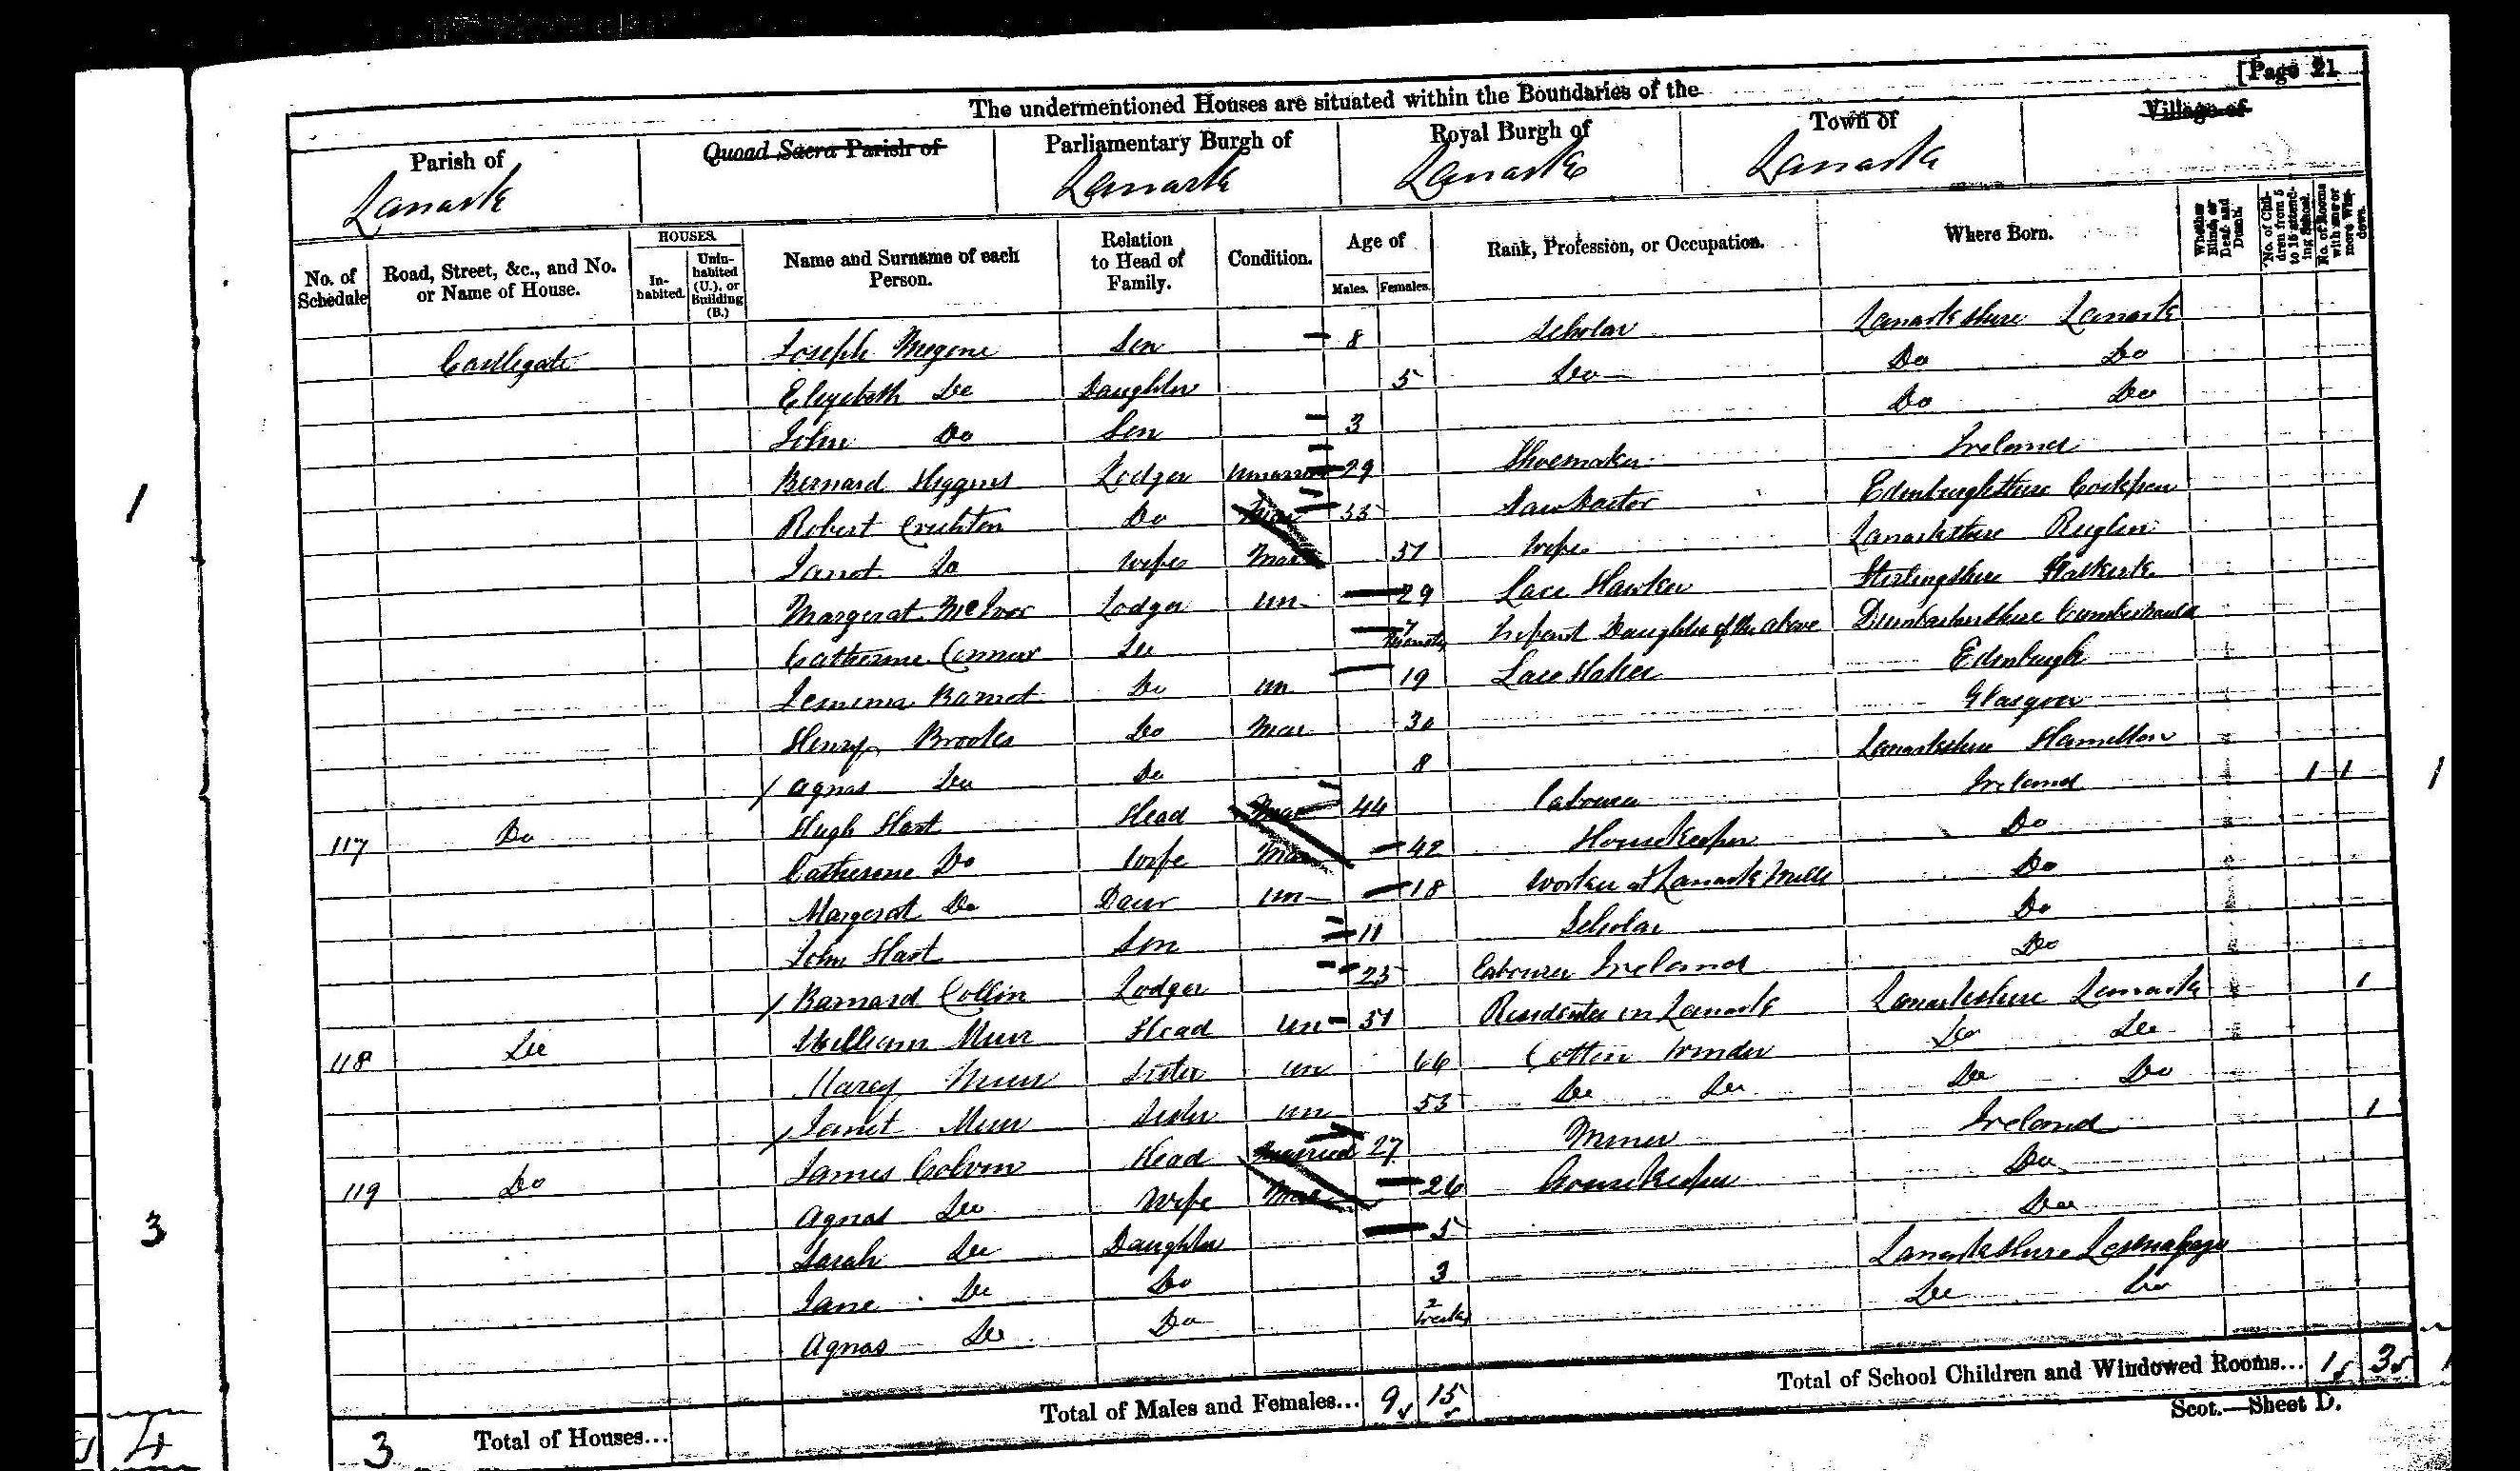 [Page 21
The undermentioned Houses are situated within the Boundaries of the
Parish of Quoad Sacra Parish of Parliamentary Burgh of Royal Burgh of Town of Village of
Lanark Lanark Lanark Lanark
No. of Schedule Road, Street, &c., and No. or Name of House. HOUSES. In-habited. Unin-habited (U.), or Building (B.) Name and Surname of each Person. Relation to Head of Family. Condition. Age of Males. Females. Rank, Profession, or Occupation. Where Born. Whether Blind, or Deaf and Dumb. No. of Chil-dren from 5 to 15 attend-ing School. No. of Rooms with one or more Win-dows.
Castlegate Joseph Son 8 Scholar Lanarkshire Lanark
Elizabeth Do Daughter 5 Do Do Do
John Do Son 3 Do Do
Bernard Higgins Lodger 29 Shoemaker Ireland
Robert Crichton Do Mar 55 Saw Doctor Edenburghshire Cockpen
Janet Do Wife Mar 51 Wife Lanarkshire Ruglen
Margerat McIvor Lodger Un 29 Lace Hawker Sterlingshire Falkirk
Catherine Connor Do 7 Months Infant Daughter of the above Dumbartonshire Cumbernauld
Jemima Barnet Do Un 19 Lace Edenburgh
Henry Brooks Do Mar 30 Glasgow
Agnes Do Do 8 Lanarkshire Hamilton
117 Do Hugh Hart Head Mar 44 Labourer Ireland 1 1
Catherine Do Wife Mar 42 Housekeeper Do
Margerat Do Daur Un 18 Worker at Lanark Mills Do
John Hart Son 11 Scholar Do
Barnard Collin Lodger 25 Labourer Ireland Do
118 Do William Muir Head Un 51 Residenter in Lanark Lanarkshire Lanark 1
Marey Muir Sister Un 66 Cotton Winder Do Do
Janet Muir Sister Un 55 Do Do Do Do
119 Do James Colvin Head Married 27 Miner Ireland 1
Agnes Do Wife Mar 26 Housekeeper Do
Sarah Do Daughter 5 Do
Jane Do Do 3 Lanarkshire Lesmahagow
Agnas Do Do 2 Weeks Do Do
Total of School Children and Windowed Rooms... 1 3
Total of Males and Females... 9 15
Scot.—Sheet D.
3 Total of Houses...
1
3
4
1